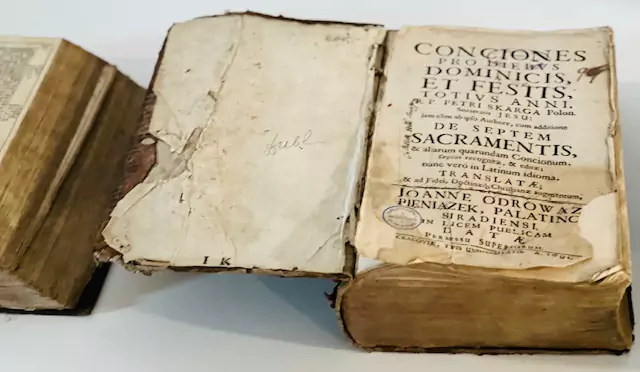 I K
CONCIONES
PRO DIEBVS
DOMINICIS,
ET FESTIS,
TOTIVS ANNI.
R. P. PETRI SKARGA Polon.
Societatis JESU:
jam olim ab ipso Authore, cum additione
DE SEPTEM
SACRAMENTIS,
& aliarum quarundam Concionum,
sæpius recognitæ, & editæ;
nunc verò in Latinum idioma,
TRANSLATÆ;
& ad Fidei, Doctrinæq; Christianæ augmentum,
JOANNE ODROWAZ
PJENIAZEK, PALATINO
SJRADIENSI,
IN LUCEM PUBLICAM
DATÆ
PERMISSU SUPERIORUM.
CRACOVIÆ, TYPIS UNIVERSITATIS